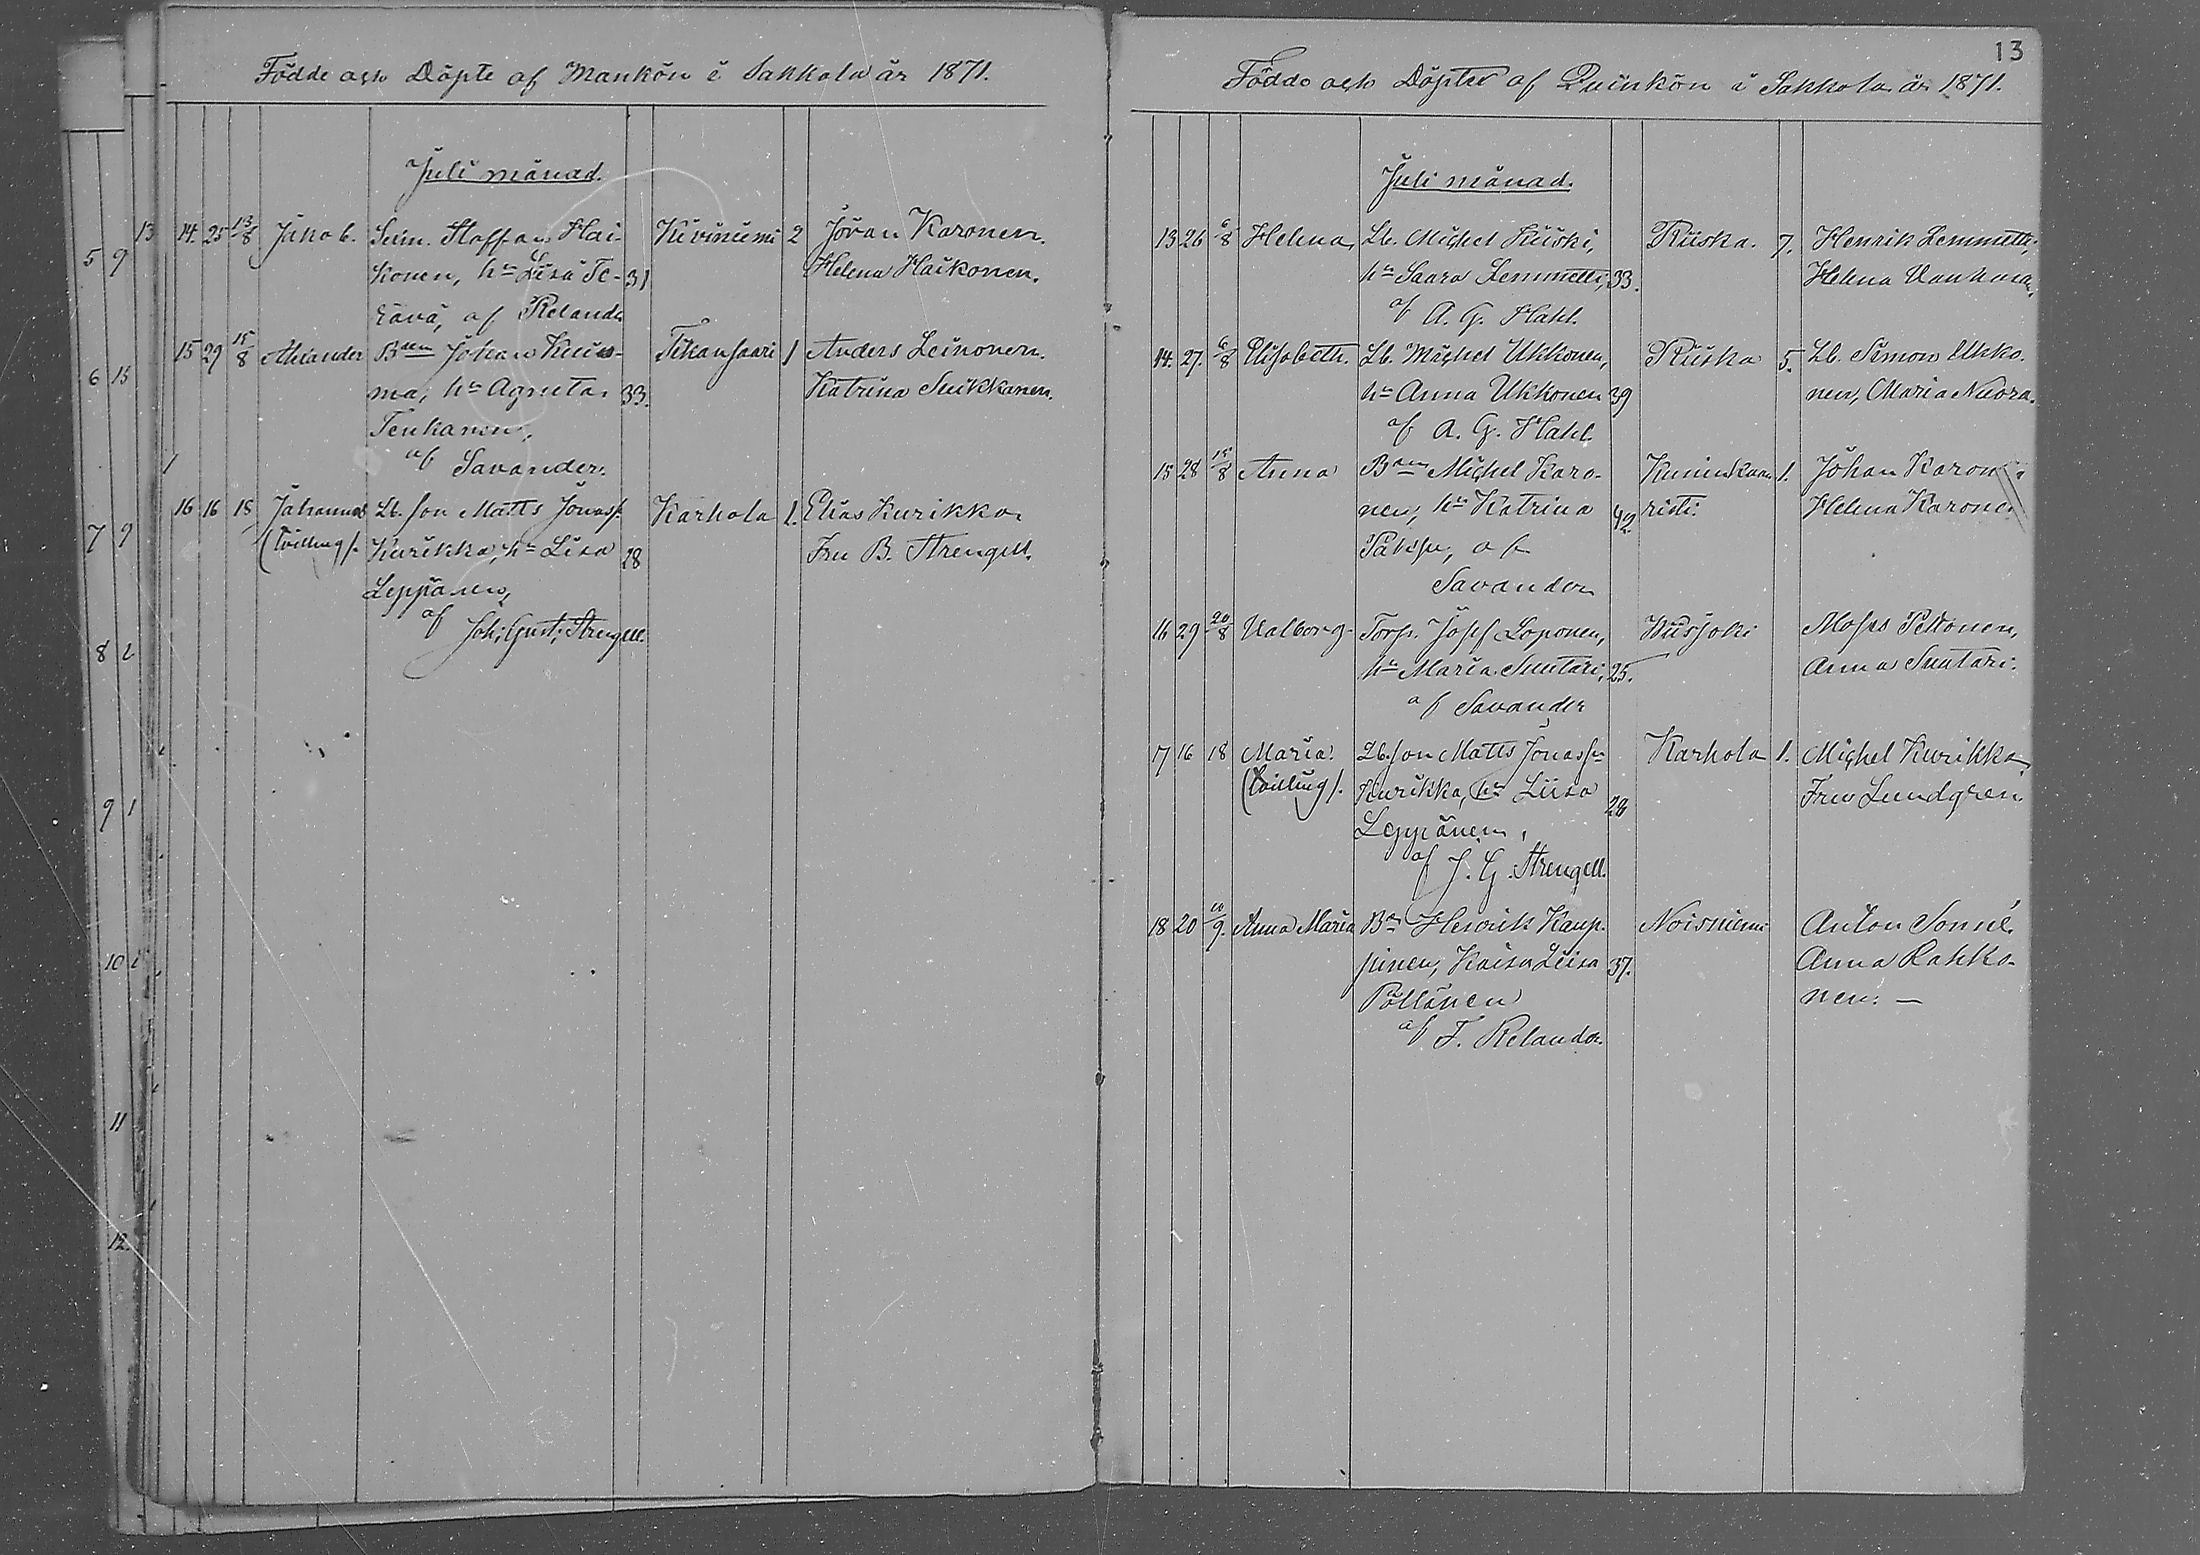 Födde och Döpte af Mankön i Sakkola år 1871.
Juli månad.
14. 25 13/8 Jakob. Staffan Hai- Kiviniemi 2 Jöran Karonen.
konen, hu Lisa Te- 31 Helena Haikonen.
rävä, af Relander
15 29 15/8 Alexander Bnen Johan Kuis- Tikansaari 1 Anders Leinonen.
ma, hu Agneta 33. Katrina Suikkanen.
Tenkanen,
af Savander.
16 16 18 Johannes Lb. son Matts Jonass. Karhola 1. Elias Kurikka
(tvilling). Kurikka, hu Lisa 28 Fru B. Strengell.
Leppänen,
af Joh: Gust: Strengell.
5 9 13
6 15
7 9
8 2
9 1
10
11
12.
13
Födde och Döpte af Qvinkön i Sakkola år 1871.
Juli månad.
13 26 6/8 Helena Lb. Michel Kiiski, Riiska. 7. Henrik Lemmetti,
hu Saara Lemmetti, 33. Helena
af A. G. Hahl.
14. 27. 6/8 Elisabeth. Lb. Michel Ukkonen, Riiska 5. Lb. Simon Ukko-
hu Anna Ukkonen 39 nen, Maria Nuora.
af A. G. Hahl.
15 28 15/8 Anna Bnen Michel Karo- 1. Johan Karonen
nen, hu Katrina 42 risti. Helena Karonen
af
Savander
16 29 20/8 Valborg Torp. Josef Loponen, Wiisjoki Moses Pekonen,
hu Maria Suutari, 25. Anna Suutari.
af Savander
17 16 18 Maria Lb. son Matts Jonass Karhola 1. Michel Kurikka,
(tvilling). Kurikka, hu Liisa 28 Fru Lundgren
Leppänen,
af J. G. Strengell.
18 20 10/9. Anna Maria Bn Henrik Kaup- Noisniemi Anton
pinen, Kaisa Liisa 37. Anna Rahko-
Pöllänen nen. —
af F. Relander.